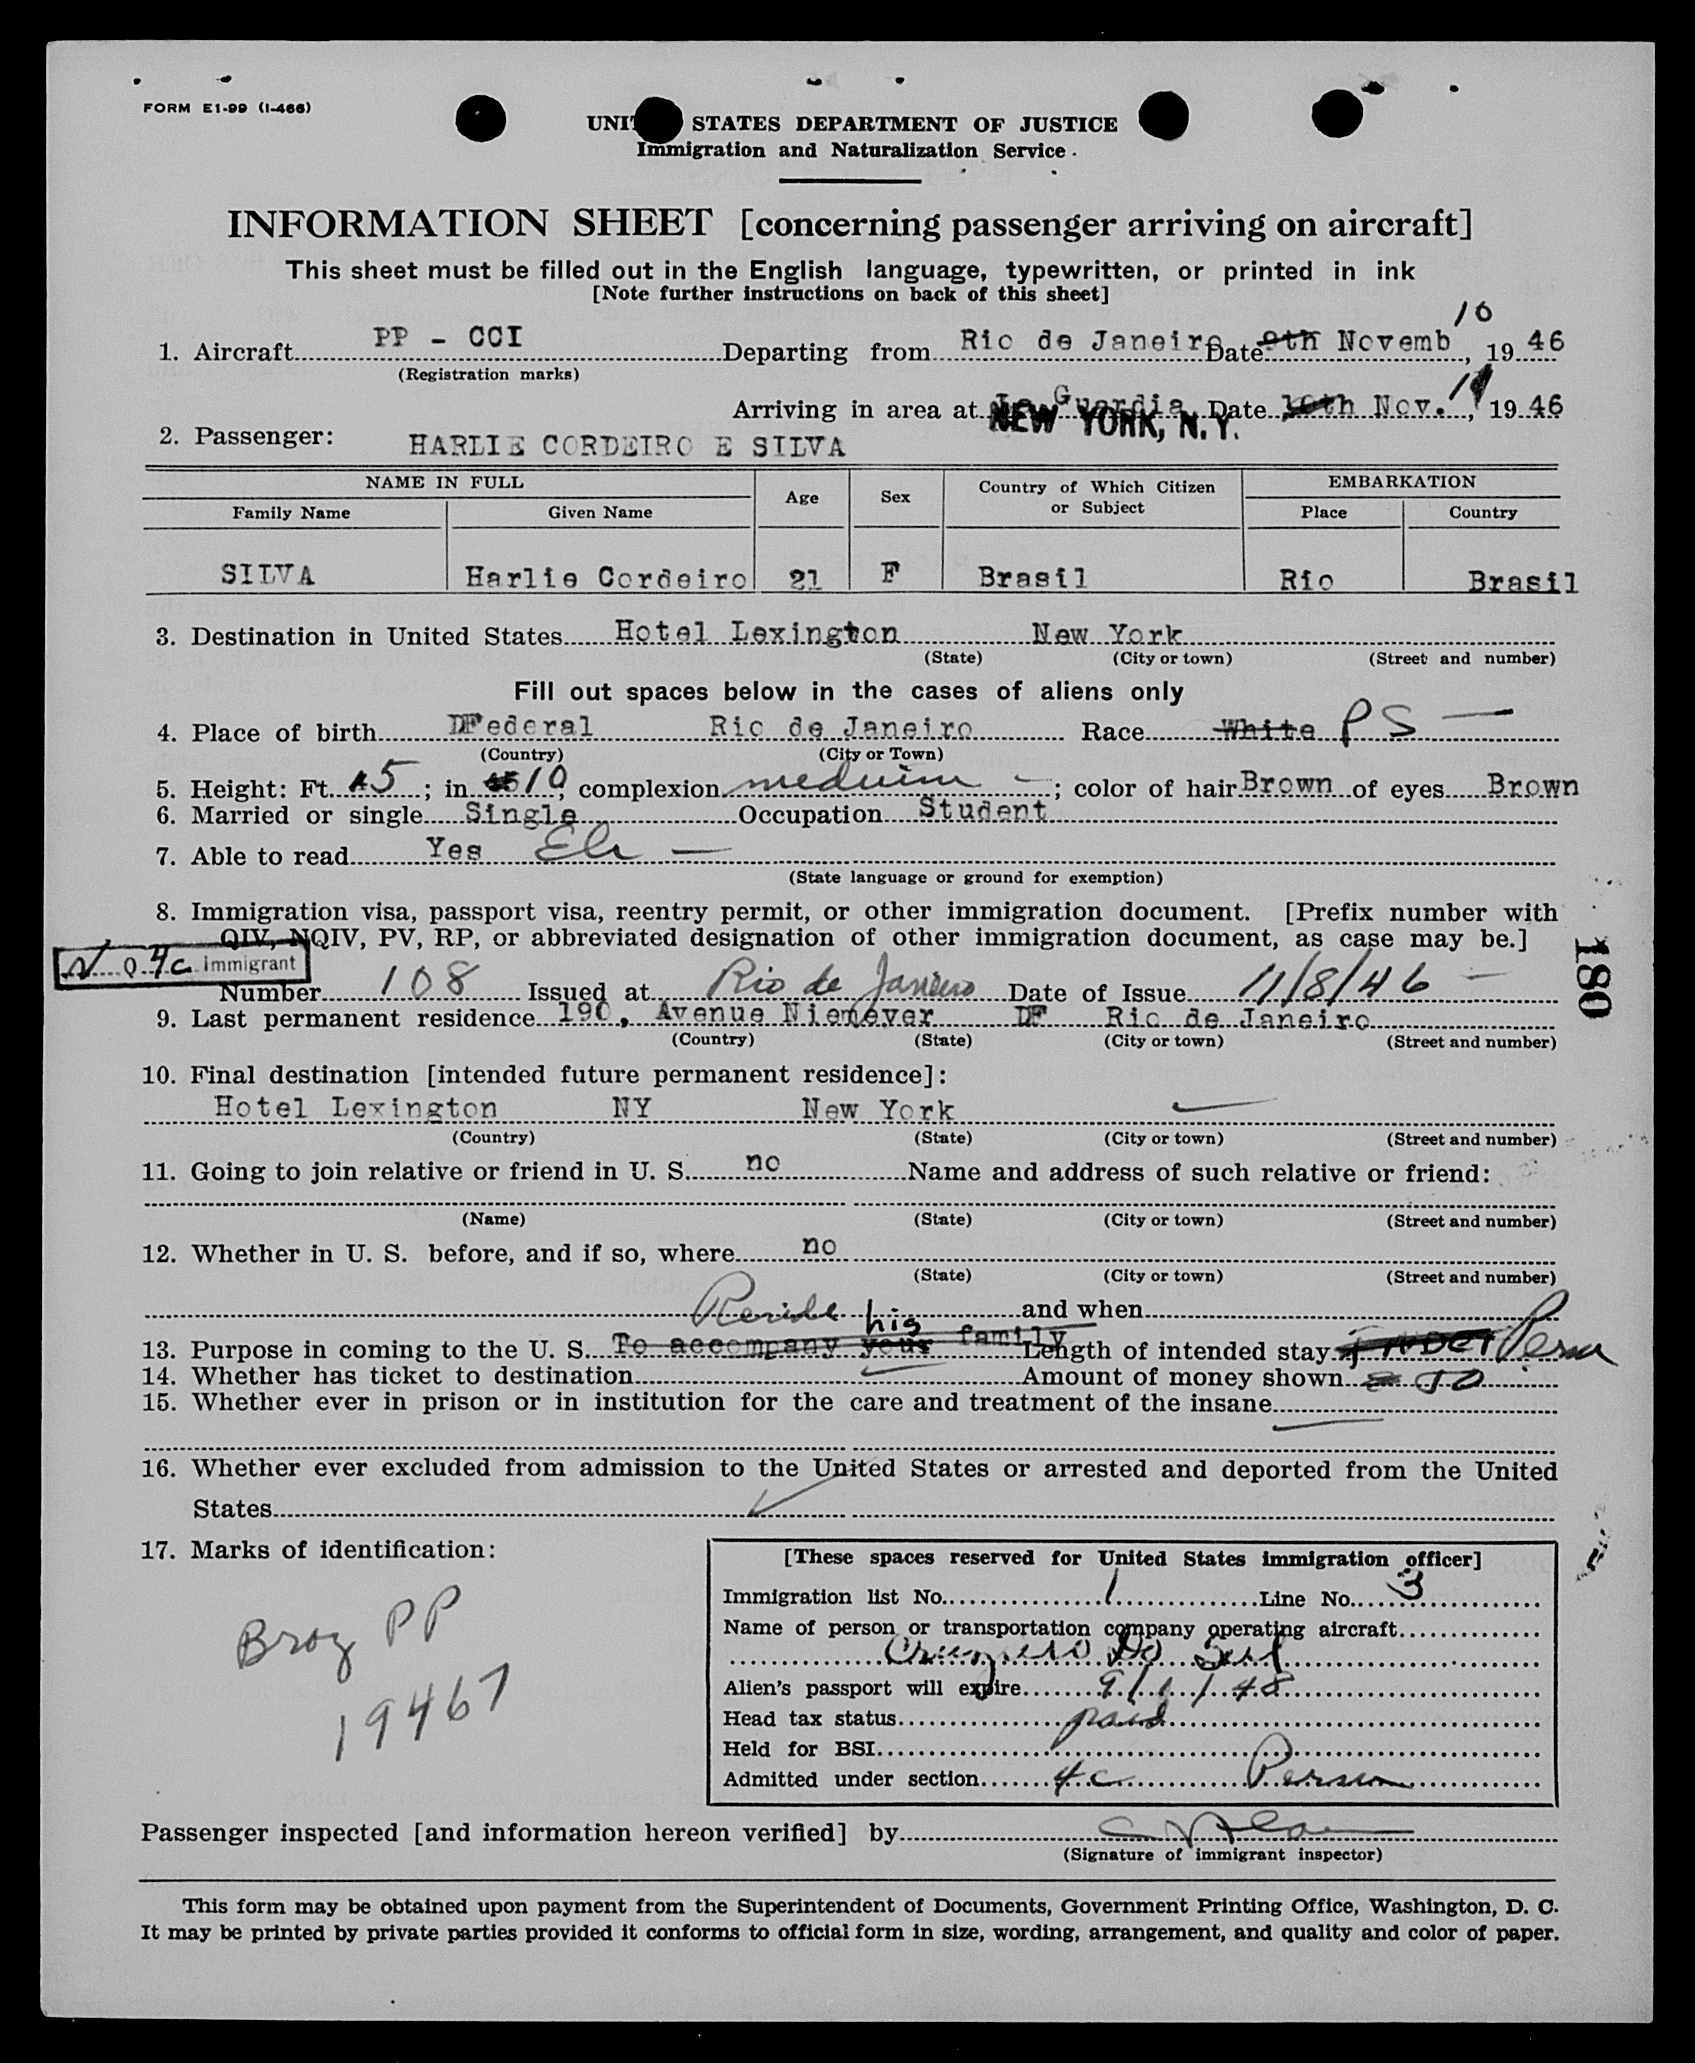 FORM E1-99 (I-466)
UNI STATES DEPARTMENT OF JUSTICE
Immigration and Naturalization Service
INFORMATION SHEET [concerning passenger arriving on aircraft]
This sheet must be filled out in the English language, typewritten, or printed in ink
[Note further instructions on back of this sheet]
10
1. Aircraft PP - CCI Departing from Rio de Janeir Date 9th Novemb, 19 46
(Registration marks)
Arriving in area at La Guardia NEW YORK, N.Y. Date 10th Nov. 11, 19 46
2. Passenger: HARLIE CORDEIRO E SILVA
NAME IN FULL Age Sex Country of Which Citizen or Subject EMBARKATION
Family Name Given Name Place Country
SILVA Harlie Cordeiro 21 F Brasil Rio Brasil
3. Destination in United States Hotel Lexington New York
(State) (City or town) (Street and number)
Fill out spaces below in the cases of aliens only
4. Place of birth DFederal Rio de Janeiro Race White PS
(Country) (City or Town)
5. Height: Ft. 5; in 10 complexion medium; color of hair Brown of eyes Brown
6. Married or single Single Occupation Student
7. Able to read Yes
(State language or ground for exemption)
8. Immigration visa, passport visa, reentry permit, or other immigration document. [Prefix number with
QIV, NQIV, PV, RP, or abbreviated designation of other immigration document, as case may be.]
N Q 4c immigrant
Number 108 Issued at Rio de Janeiro Date of Issue 11/8/46
9. Last permanent residence 190, Avenue Niemeyer DF Rio de Janeiro
(Country) (State) (City or town) (Street and number)
180
10. Final destination [intended future permanent residence]:
Hotel Lexington NY New York
(Country) (State) (City or town) (Street and number)
11. Going to join relative or friend in U. S. no Name and address of such relative or friend:
(Name) (State) (City or town) (Street and number)
12. Whether in U. S. before, and if so, where no
(State) (City or town) (Street and number)
Reside his and when
13. Purpose in coming to the U. S. To accompany your family Length of intended stay
14. Whether has ticket to destination Amount of money shown 50
15. Whether ever in prison or in institution for the care and treatment of the insane
16. Whether ever excluded from admission to the United States or arrested and deported from the United
States
17. Marks of identification:
Braz PP
19467
[These spaces reserved for United States immigration officer]
Immigration list No. 1 Line No. 3
Name of person or transportation company operating aircraft
Cruzeiro Do Sul
Alien's passport will expire 9/1/48
Head tax status paid
Held for BSI
Admitted under section 4c
Passenger inspected [and information hereon verified] by
(Signature of immigrant inspector)
This form may be obtained upon payment from the Superintendent of Documents, Government Printing Office, Washington, D. C.
It may be printed by private parties provided it conforms to official form in size, wording, arrangement, and quality and color of paper.